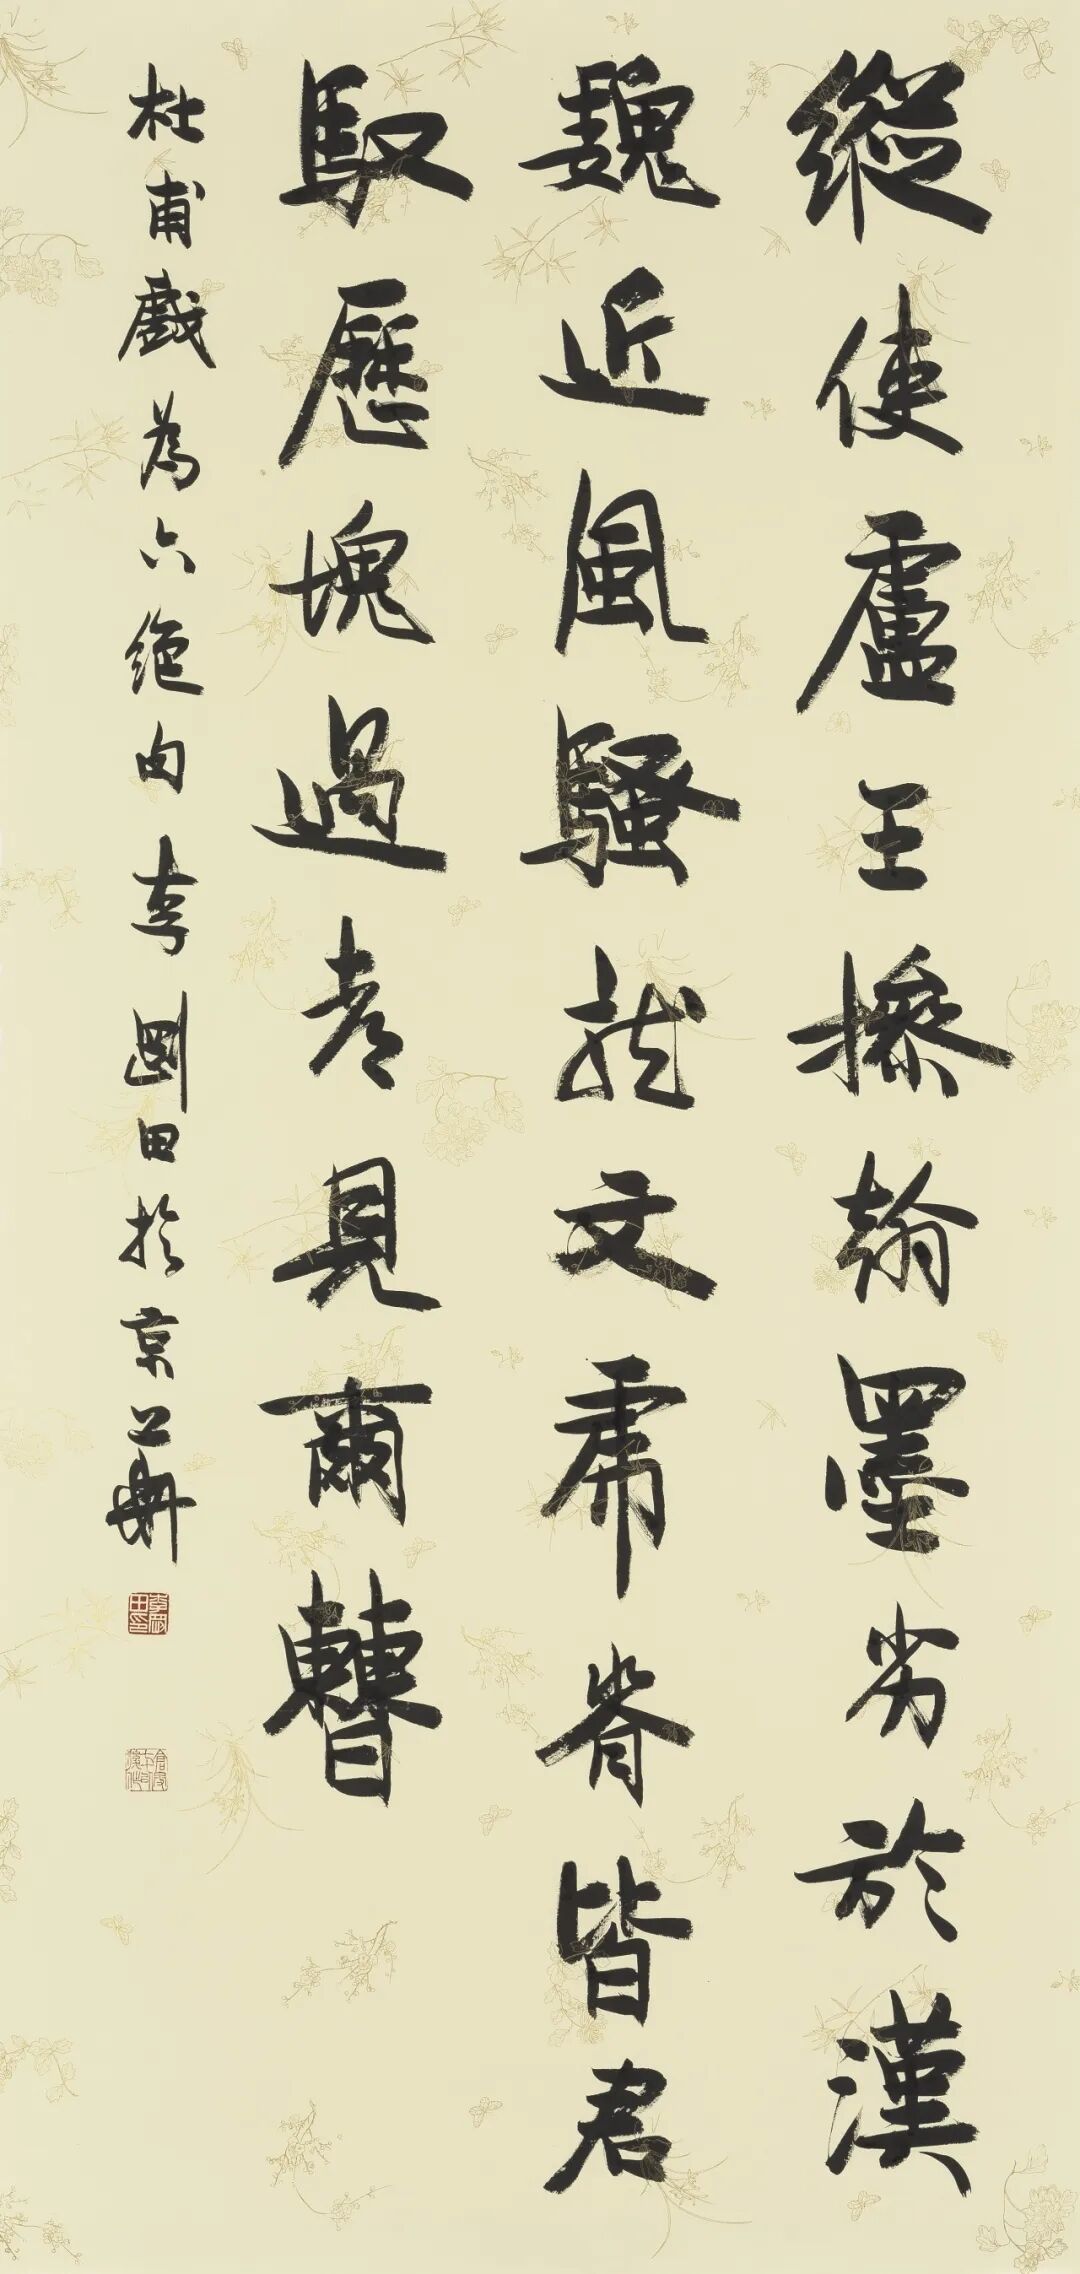 縱使盧王操翰墨劣於漢
魏近風騷龍文虎脊皆君
馭歷塊過都見爾曹
杜甫戲為六絕句李剛田於京華
李剛田印